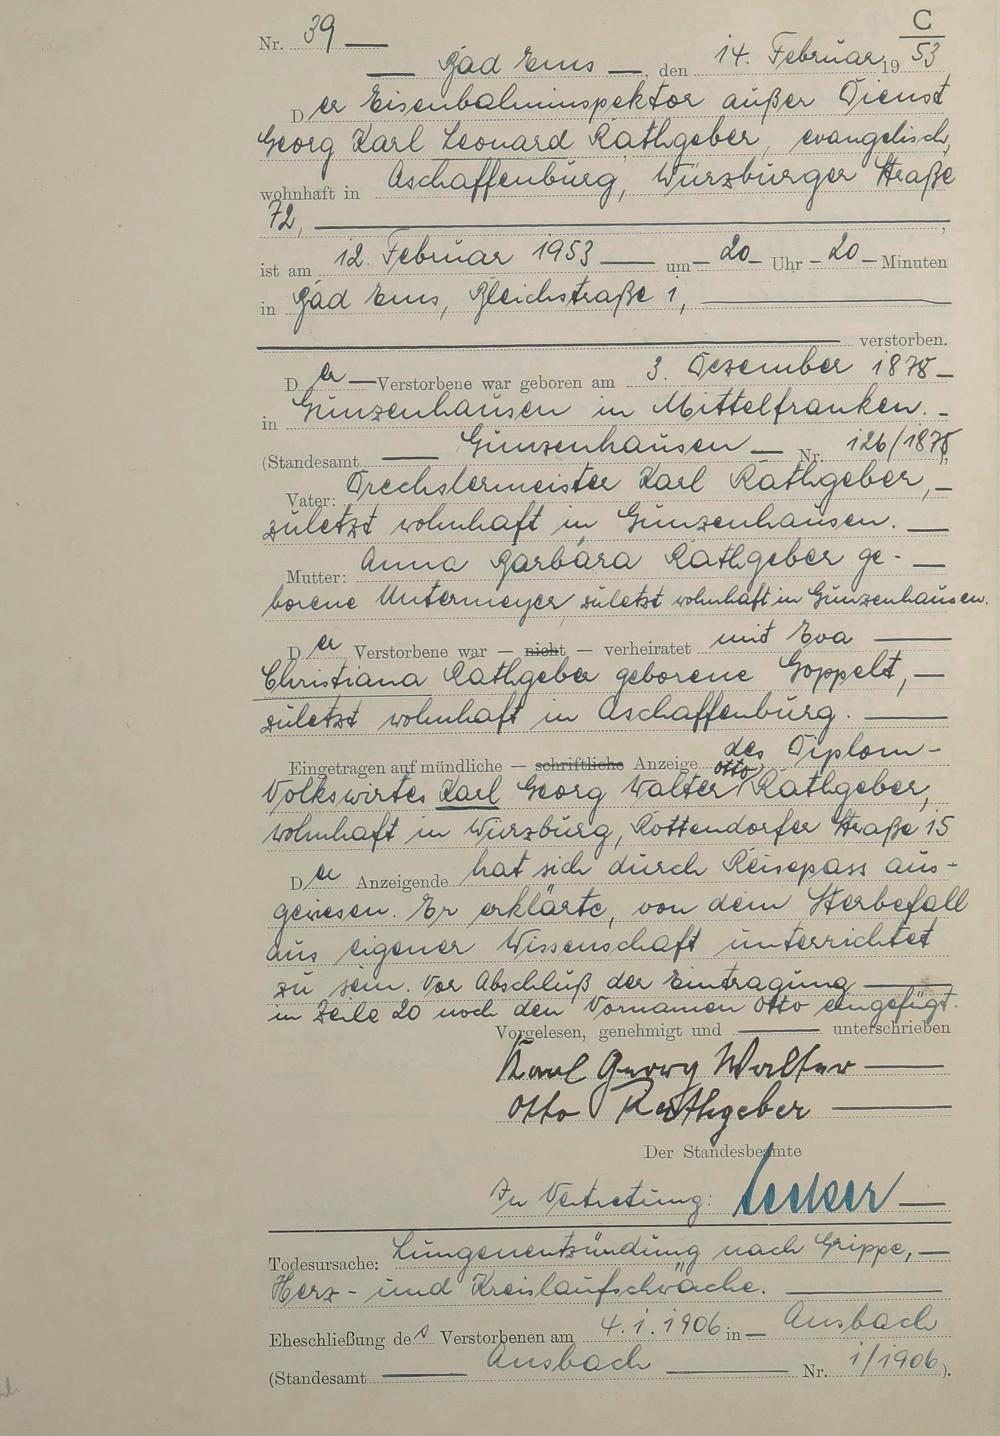 C
Nr. 39
Bad Ems, den 14. Februar 1953
Der Eisenbahninspektor außer Dienst
Georg Karl Leonard Rathgeber, evangelisch,
wohnhaft in Aschaffenburg, Würzburger Straße
72, ,
ist am 12. Februar 1953 um 20 Uhr 20 Minuten
in Bad Ems, Bleichstraße 1,
verstorben.
Der Verstorbene war geboren am 3. Dezember 1878
in Gunzenhausen in Mittelfranken.
(Standesamt Gunzenhausen Nr. 126/1878)
Vater: Drechslermeister Karl Rathgeber,
zuletzt wohnhaft in Gunzenhausen.
Mutter: Anna Barbara Rathgeber ge-
borene Untermeyer, zuletzt wohnhaft in Gunzenhausen.
Der Verstorbene war — nicht — verheiratet mit Eva
Christiana Rathgeber geborene Goppelt,
zuletzt wohnhaft in Aschaffenburg.
Eingetragen auf mündliche — schriftliche Anzeige des Diplom-
Otto
Volkswirtes Karl Georg Walter Rathgeber,
wohnhaft in Würzburg, Rottendorfer Straße 15
Der Anzeigende hat sich durch Reisepass aus-
gewiesen. Er erklärte, von dem Sterbefall
aus eigener Wissenschaft unterrichtet
zu sein. Vor Abschluß der Eintragung
in Zeile 20 noch den Vornamen Otto eingefügt.
Vorgelesen, genehmigt und unterschrieben
Karl Georg Walter
Otto Rathgeber
Der Standesbeamte
In Vertretung:
Todesursache: Lungenentzündung nach Grippe,
Herz- und Kreislaufschwäche.
Eheschließung des Verstorbenen am 4.1.1906 in Ansbach
(Standesamt Ansbach Nr. 1/1906).